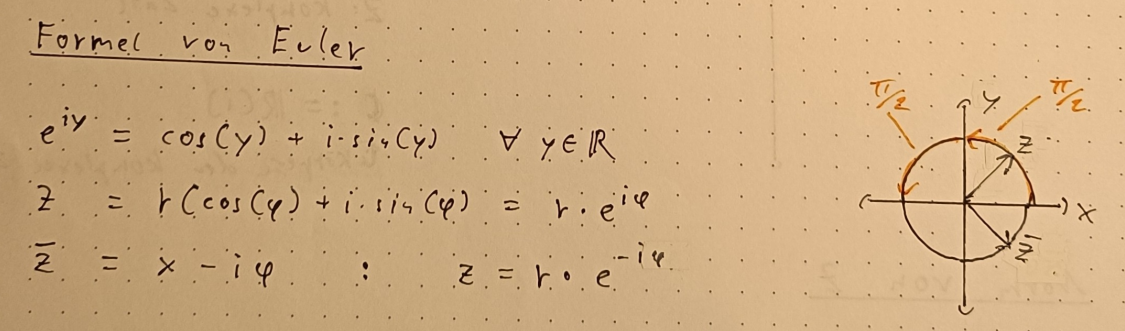 Formel von Euler
e^{iy} = cos(y) + i·sin(y) ∀ y∈ℝ
z = r(cos(φ) + i·sin(φ) = r·e^{iφ}
z̅ = x - iφ : z = r·e^{-iφ}
π/2 y π/2
z
x
z̅